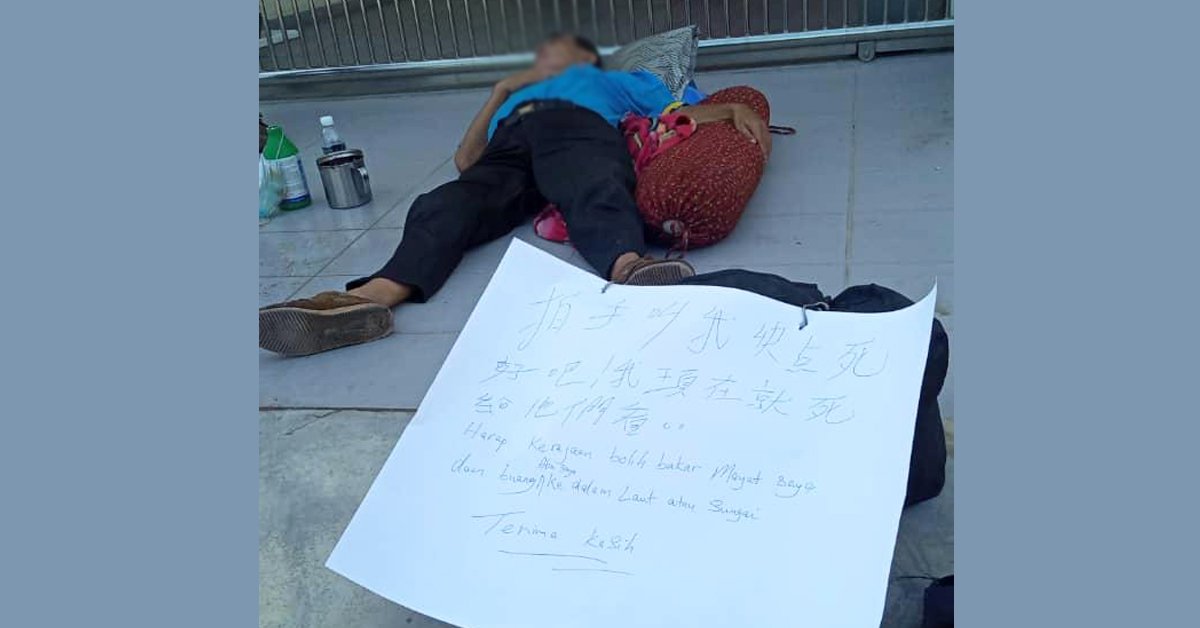 拍手叫我快点死
好吧!我現在就死
給他們看..
Harap Kerajaan bolih bakar Mayat saya
dan buang Abu saya Ke dalam Laut atau Sungai
Terima Kasih